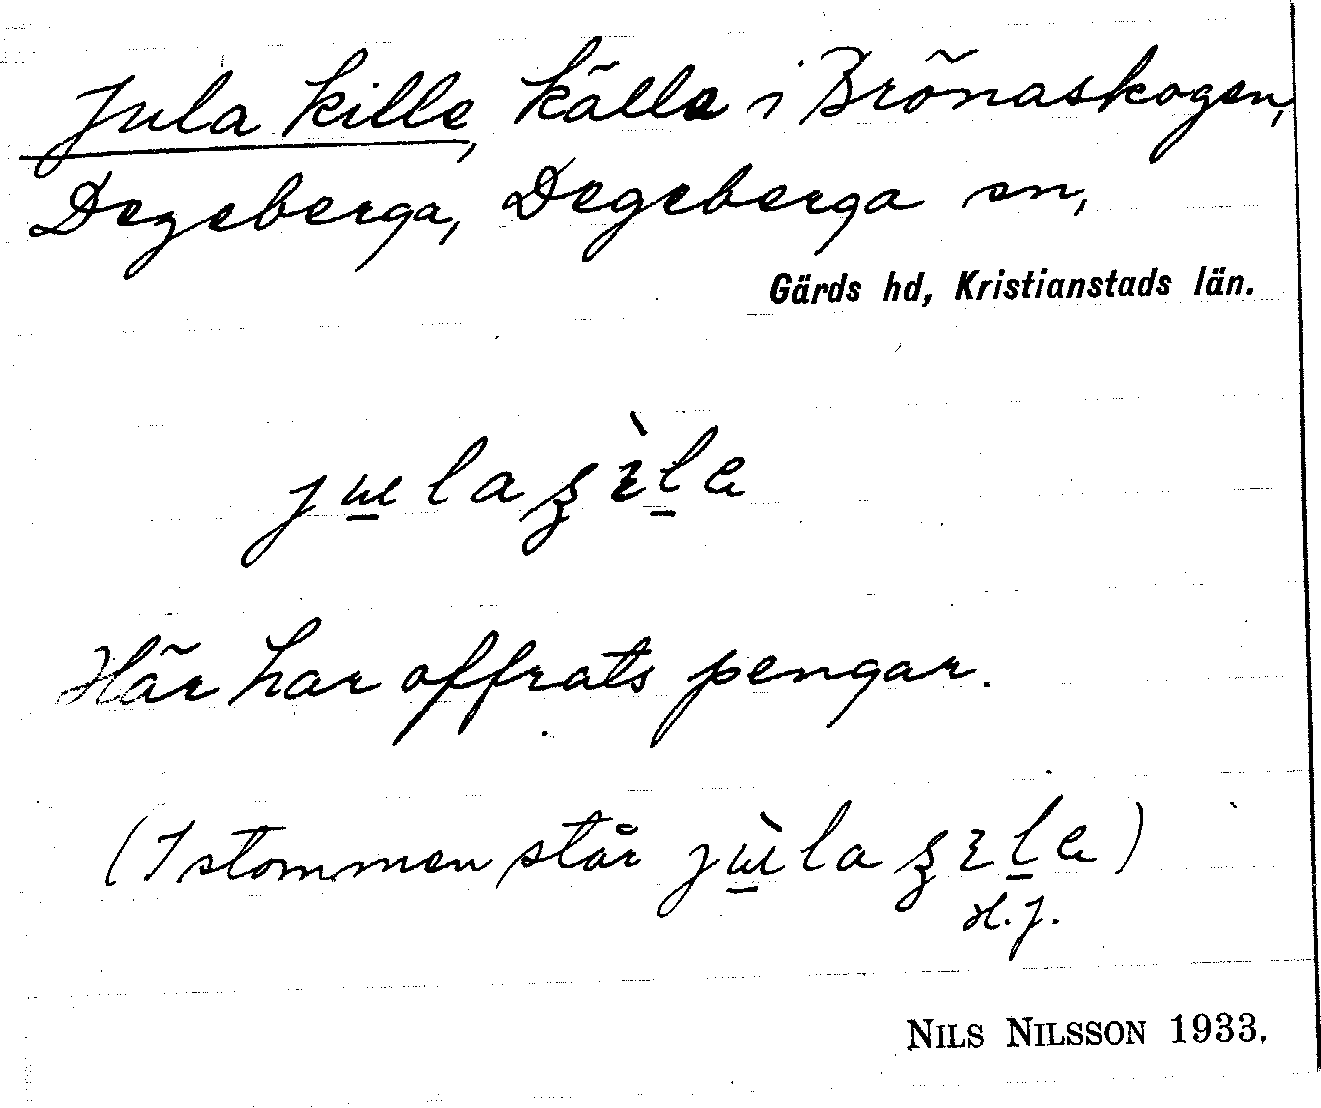 Jula kille, källa i Brönaskogen,
Degeberga, Degeberga sn,
Gärds hd, Kristianstads län.
Här har offrats pengar.
(I stommen står
H.J.
NILS NILSSON 1933.